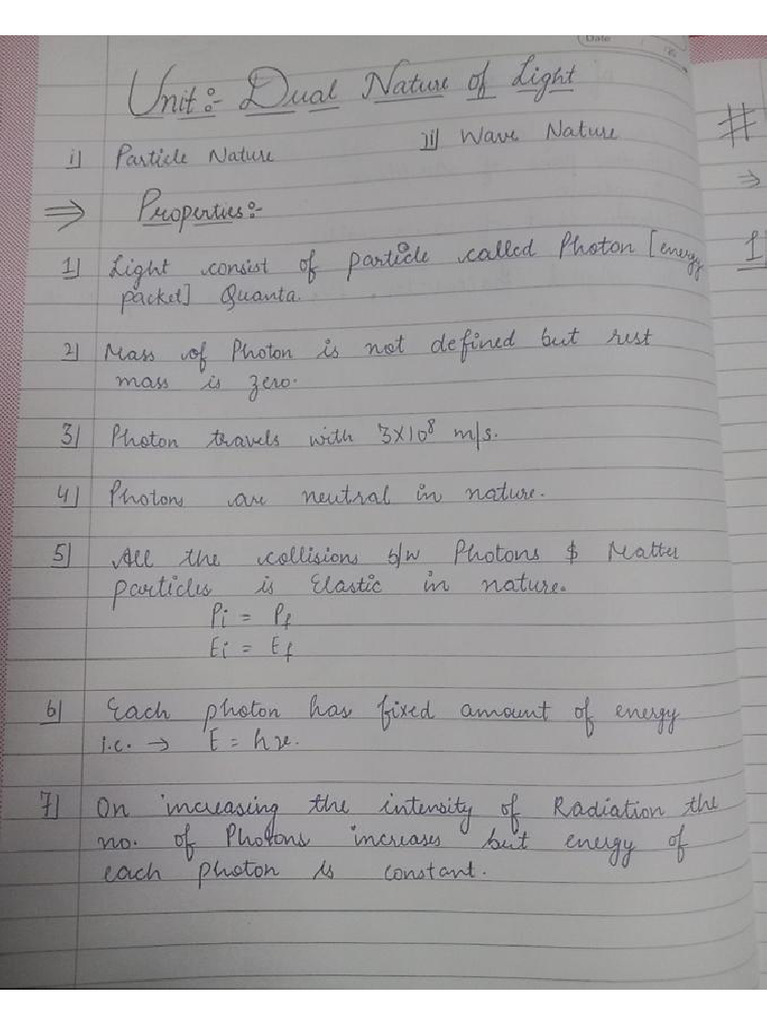 Date
Unit:- Dual Nature of Light
i) Particle Nature ii) Wave Nature
⇒ Properties:-
1) Light consist of particle called Photon [energy
packet] Quanta.
2) Mass of Photon is not defined but rest
mass is zero.
3) Photon travels with 3×10⁸ m/s.
4) Photons are neutral in nature.
5) All the collisions b/w Photons & Matter
particles is Elastic in nature.
Pi = Pf
Ei = Ef
6) Each photon has fixed amount of energy
i.e. → E = hν.
7) On increasing the intensity of Radiation the
no. of Photons increases but energy of
each photon is constant.
#
⇒
1)